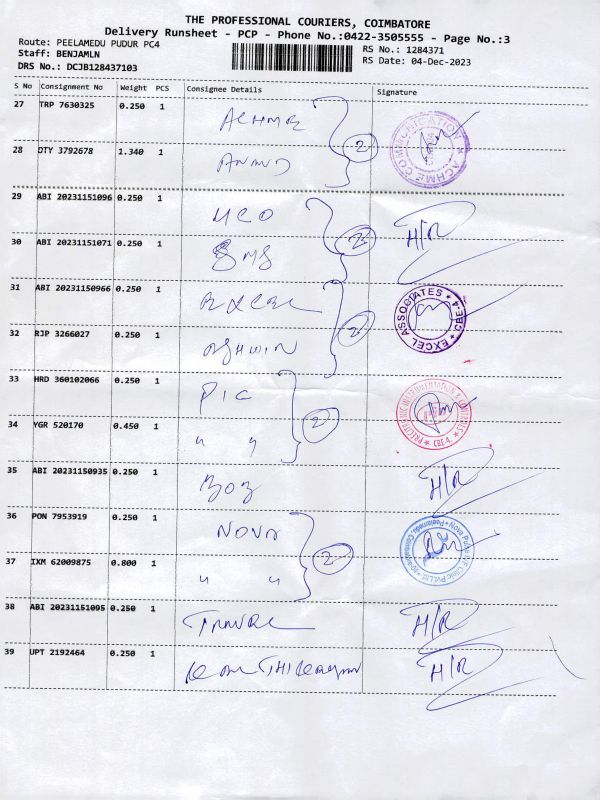 THE PROFESSIONAL COURIERS, COIMBATORE
Delivery Runsheet - PCP - Phone No.:0422-3505555 - Page No.:3
Route: PEELAMEDU PUDUR PC4
RS No.: 1284371
Staff: BENJAMLN
RS Date: 04-Dec-2023
DRS No.: DCJB128437103
S No Consignment No Weight PCS Consignee Details Signature
27 TRP 7630325 0.250 1
ACHME COMMUNICATION
28 DTY 3792678 1.340 1 ANAND
2
29 ABI 20231151096 0.250 1 MCO
H/R
30 ABI 20231151071 0.250 1 SMS
2
31 ABI 20231150966 0.250 1 EXCEL
EXCEL ASSOCIATES CBE-4
32 RJP 3266027 0.250 1 ASHWIN
2
33 HRD 360102066 0.250 1 PIC
34 YGR 520170 0.450 1 " "
2
CBE-4
35 ABI 20231150935 0.250 1 BOB
H/R
36 PON 7953919 0.250 1 NOVA
37 IXM 62009875 0.800 1 " "
2
38 ABI 20231151095 0.250 1
H/R
39 UPT 2192464 0.250 1
H/R